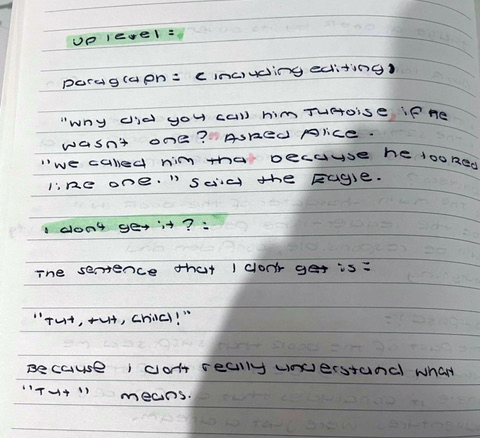 up level:
paragraph: (including editing)
"Why did you call him Turtoise, if he
wasn't one?" Asked Alice.
"We called him that because he looked
like one." Said the Eagle.
I don't get it?:
The sentence that I don't get is:
"Tut, tut, child!"
Because I don't really understand what
"Tut" means.